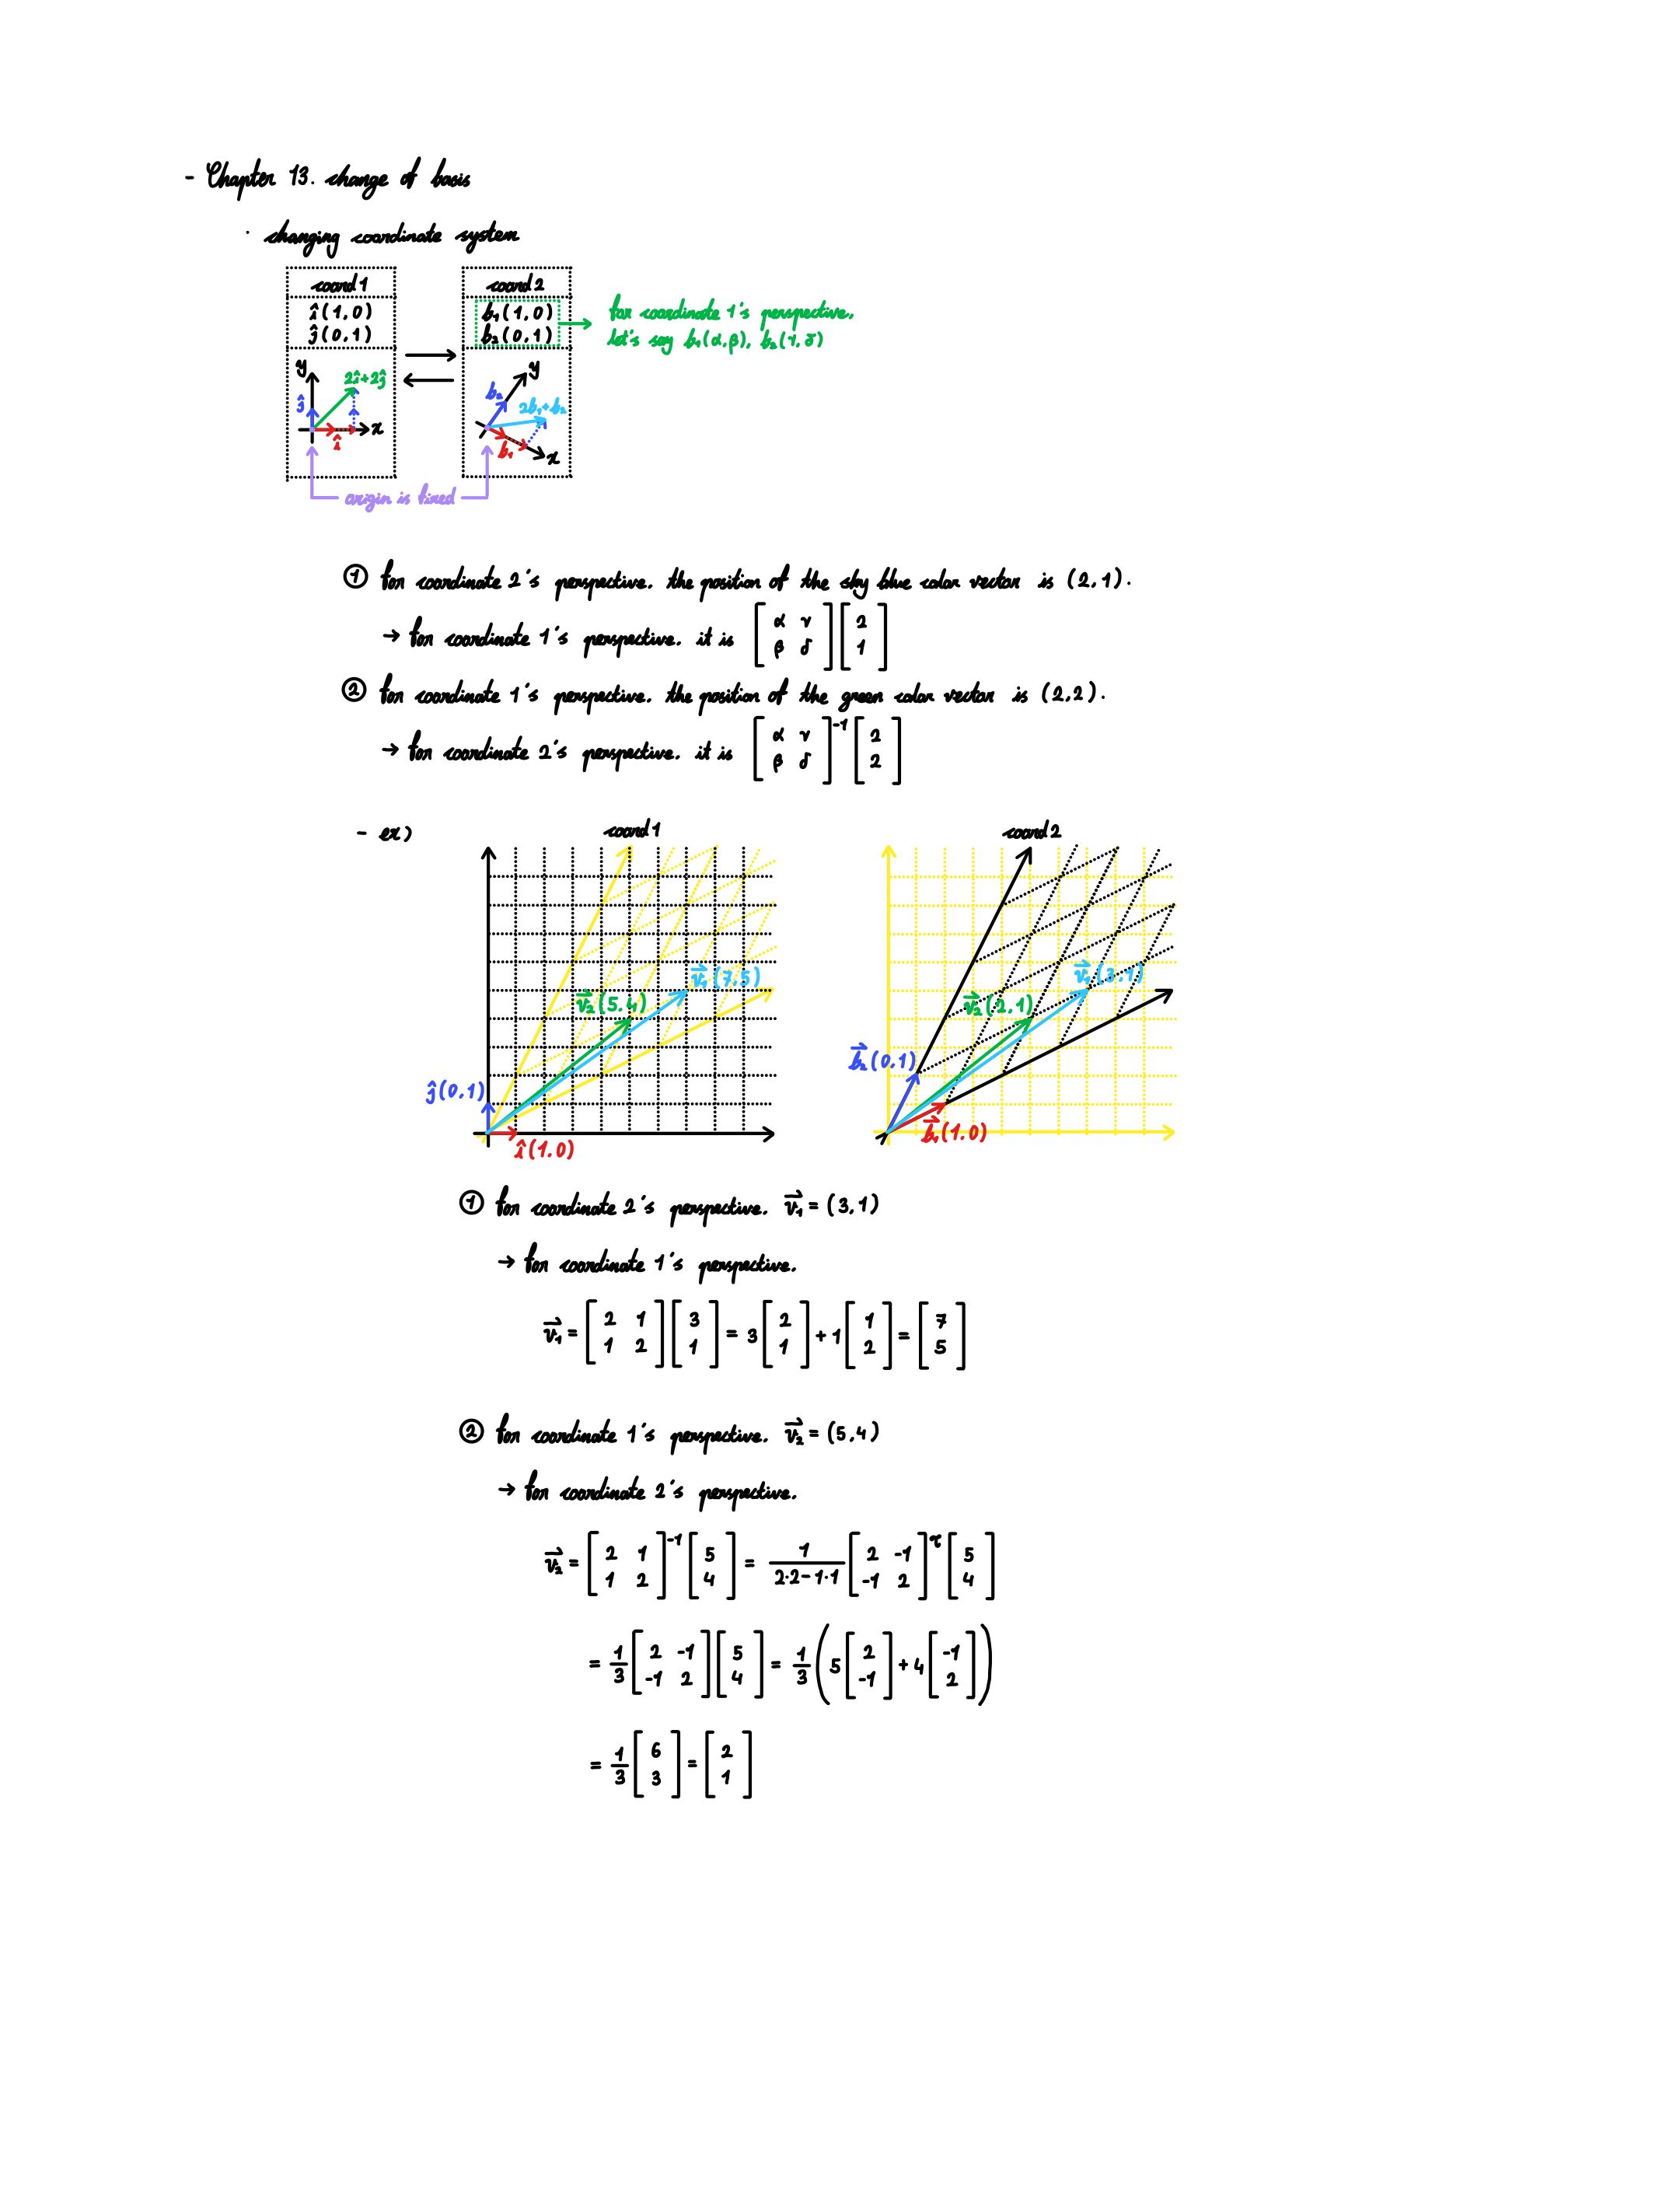 - Chapter 13. change of basis
· changing coordinate system
coord 1
î (1, 0)
ĵ (0, 1)
y
2î+2ĵ
ĵ
x
î
coord 2
b₁ (1, 0)
b₂ (0, 1)
y
b₂
2b₁+b₂
b₁
x
for coordinate 1's perspective,
let's say b₁(α, β), b₂(γ, δ)
origin is fixed
① for coordinate 2's perspective. the position of the sky blue color vector is (2, 1).
→ for coordinate 1's perspective. it is [α γ; β δ] [2; 1]
② for coordinate 1's perspective. the position of the green color vector is (2, 2).
→ for coordinate 2's perspective. it is [α γ; β δ]⁻¹ [2; 2]
- ex)
coord 1
v⃗₁ (7, 5)
v⃗₂ (5, 4)
ĵ (0, 1)
î (1, 0)
coord 2
v⃗₁ (3, 1)
v⃗₂ (2, 1)
b⃗₂ (0, 1)
b⃗₁ (1, 0)
① for coordinate 2's perspective. v⃗₁ = (3, 1)
→ for coordinate 1's perspective.
v⃗₁ = [2 1; 1 2] [3; 1] = 3 [2; 1] + 1 [1; 2] = [7; 5]
② for coordinate 1's perspective. v⃗₂ = (5, 4)
→ for coordinate 2's perspective.
v⃗₂ = [2 1; 1 2]⁻¹ [5; 4] = 1/(2·2-1·1) [2 -1; -1 2]ᵀ [5; 4]
= 1/3 [2 -1; -1 2] [5; 4] = 1/3 (5 [2; -1] + 4 [-1; 2])
= 1/3 [6; 3] = [2; 1]